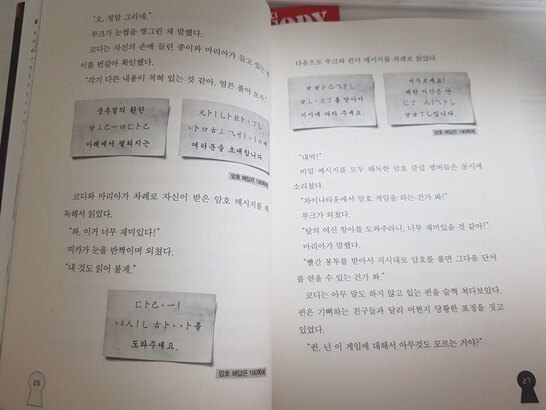 "오, 정말 그러네."
루크가 눈썹을 찡그린 채 말했다.
코디는 자신의 손에 들린 종이와 마리아가 들고 있는
이를 번갈아 확인했다.
"각기 다른 내용이 적혀 있는 것 같아. 얼른 풀어 보자."
중추절의 환한
아래에서 펼쳐지는
여러분을 초대합니다
암호 해답은 190쪽에
코디와 마리아가 차례로 자신이 받은 암호 메시지를
독해서 읽었다.
"와, 이거 너무 재미있다!"
미카가 눈을 반짝이며 외쳤다.
"내 것도 읽어 볼게."
도와주세요.
암호 해답은 190쪽에
26
다음으로 루크와 퀸이 메시지를 차례로 읽었다.
를 찾아서
지시에 따라 주세요
서두르세요!
제한 시간은 단
입니다.
암호 해답은 190쪽에
"대박!"
비밀 메시지를 모두 해독한 암호 클럽 멤버들은 동시에
소리쳤다.
"차이나타운에서 암호 게임을 하는 건가 봐!"
루크가 외쳤다.
"달의 여신 항아를 도와주라니, 너무 재미있을 것 같아!"
마리아가 말했다.
"빨간 봉투를 받아서 지시대로 암호를 풀면 그다음 단서
를 얻을 수 있는 건가 봐."
코디는 아무 말도 하지 않고 있는 퀸을 슬쩍 쳐다보았다.
퀸은 기뻐하는 친구들과 달리 어쩐지 당황한 표정을 짓고
있었다.
"퀸, 넌 이 게임에 대해서 아무것도 모르는 거야?"
27